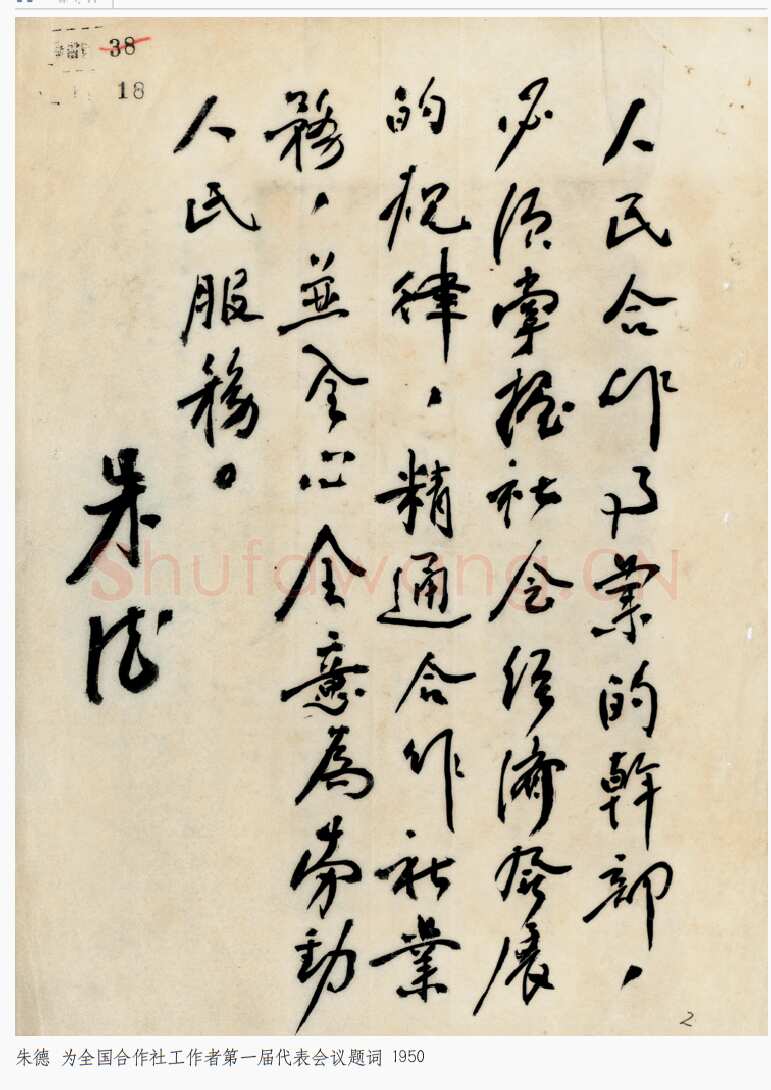 38
18
人民合作事業的幹部，
必須掌握社会經濟發展
的規律，精通合作社業
務，並全心全意為勞動
人民服務。
朱德
Shufawang.CN
2
朱德 为全国合作社工作者第一届代表会议题词 1950